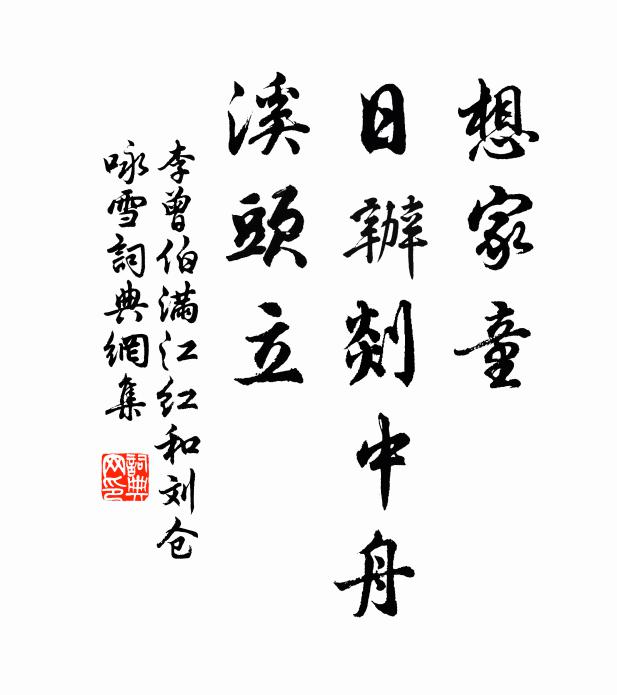 想家童
日辦剡中舟
溪頭立
李曾伯满江红和刘仓
咏雪詞典網集
詞典
网印